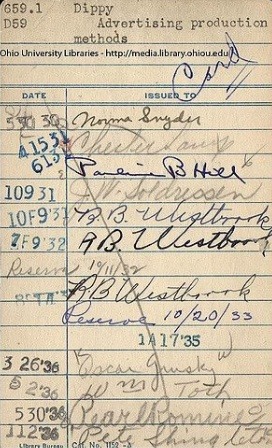 659.1 Dippy
D59 Advertising production
methods
Ohio University Libraries - http://media.library.ohiou.edu
Card
DATE ISSUED TO
530 30 Norma Snyder
41531 Chester
613 Pauline B Hill
10931 J. W.
10F9'31 A. B. Westbrook
7F9'32 A B Westbrook
Reserve 10/11/32
A B Westbrook
Reserve 10/20/33
1A17'35
3 26'36 Oscar
6 2'36 W M Toth
530'36 Pearl
112'36
Library Bureau Cat. No. 1152